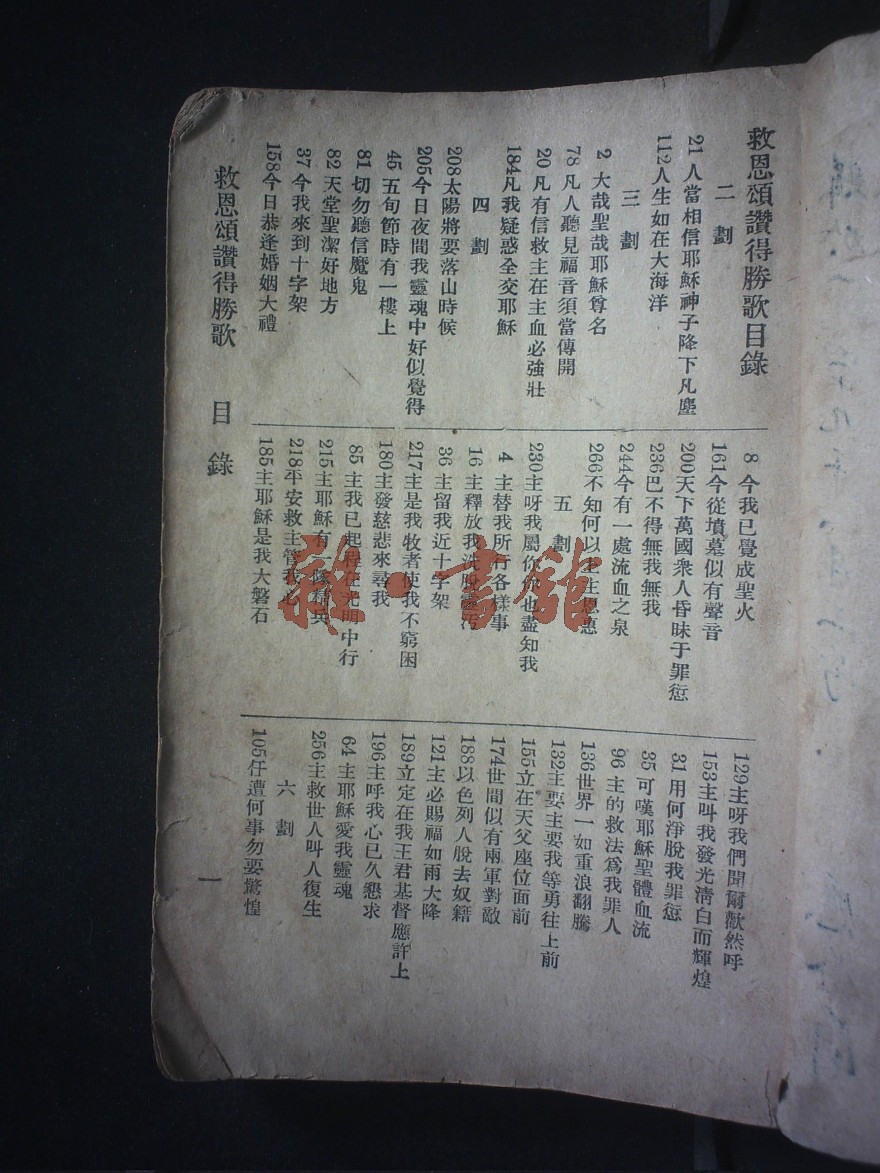 救恩頌讚得勝歌目錄
二劃
21 人當相信耶穌神子降下凡塵
112人生如在大海洋
三劃
2 大哉聖哉耶穌尊名
78 凡人聽見福音須當傳開
20 凡有信救主在主血必強壯
184凡我疑惑全交耶穌
四劃
208太陽將要落山時候
205今日夜間我靈魂中好似覺得
45 五旬節時有一樓上
81 切勿聽信魔鬼
82 天堂聖潔好地方
37 今我來到十字架
158今日恭逢婚姻大禮
8 今我已覺成聖火
161今從墳墓似有聲音
200天下萬國衆人昏昧于罪愆
236巴不得無我無我
244今有一處流血之泉
266不知何以主恩惠
五劃
230主呀我屬你你也盡知我
4 主替我所行各樣事
16 主釋放我洗脫靈污
36 主留我近十字架
217主是我牧者使我不窮困
180主發慈悲來尋我
85 主我已起程在光明中行
215主耶穌有一隊精兵
218平安救主管我心
185主耶穌是我大磐石
129主呀我們聞爾歡然呼
153主叫我發光淸白而輝煌
31 用何淨脫我罪愆
35 可嘆耶穌聖體血流
96 主的救法爲我罪人
136世界一如重浪翻騰
132主要主要我等勇往上前
155立在天父座位面前
174世間似有兩軍對敵
188以色列人脫去奴籍
121主必賜福如雨大降
189立定在我王君基督應許上
196主呼我心已久懇求
64 主耶穌愛我靈魂
256主救世人叫人復生
六劃
105任遭何事勿要驚惶
救恩頌讚得勝歌 目錄
一
雜·書館